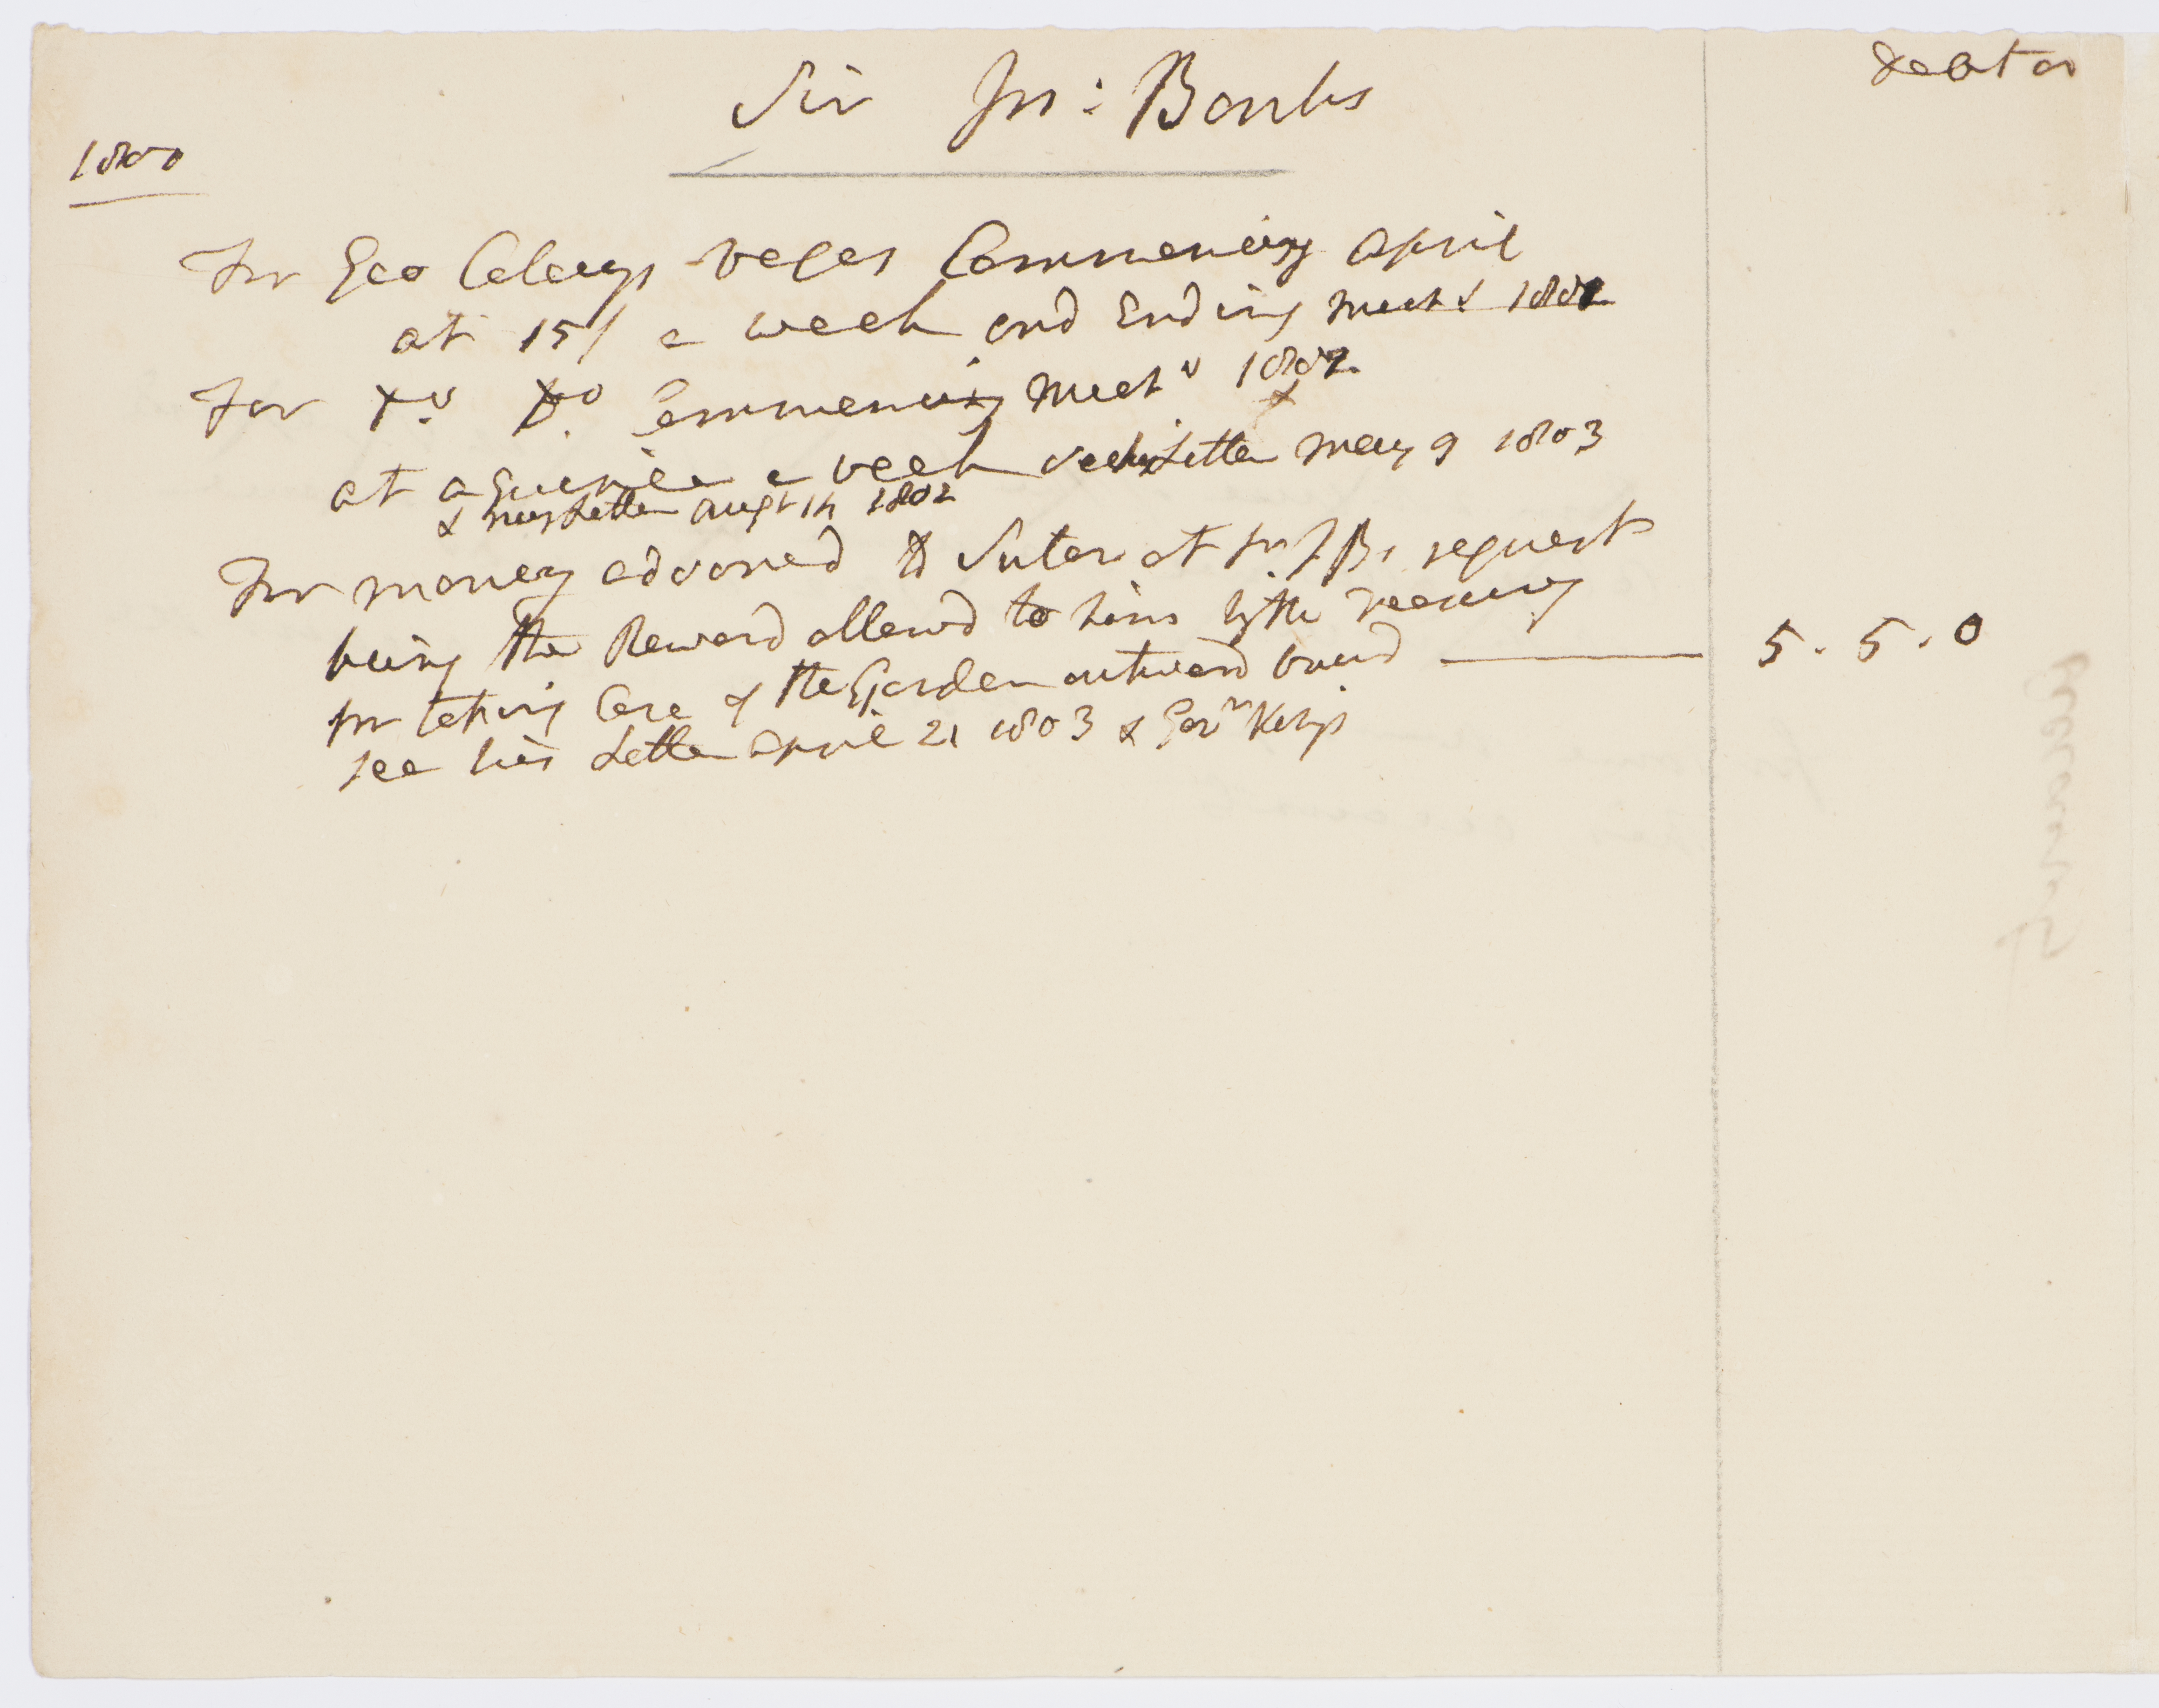 Sir Jos: Banks
debtor
1800
For Geo Caleys wages Commencing april
at 15/ a week and Ending March 1802
For Do Do Commencing March 1802
at a Guinea a week See his Letter may 9 1803
& my Letter Augt 1802
For money advanced to Suter at Sir J Bs request
being the Reward allowd to him by the Treasury
for taking Care of the Garden outward bound 5.5.0
see his Letter april 21 1803 & Govr Kings